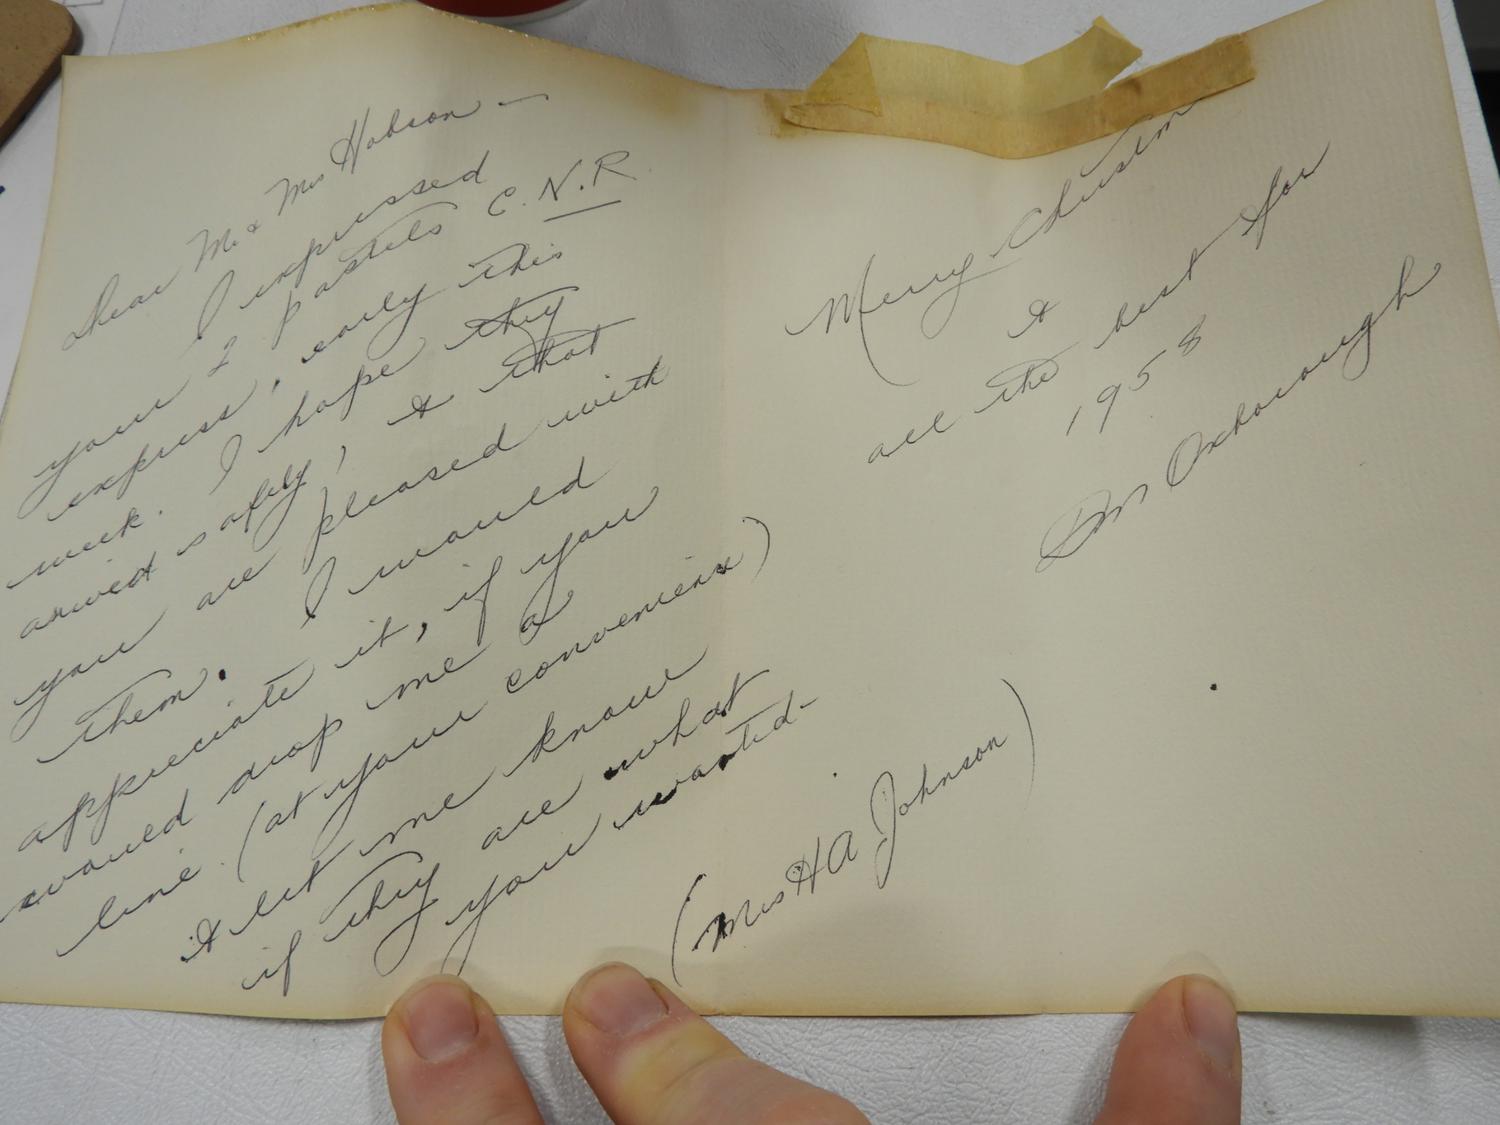 Dear Mr & Mrs Hobson —
I expressed
your 2 pastels C.N.R.
express, early this
week. I hope they
arrived safely, & that
you are pleased with
them. I would
appreciate it, if you
would drop me a
line (at your convenience)
& let me know
if they are what
you wanted —
Merry Christm
&
all the best for
1958
DM Oxborough
(Mrs H A Johnson)